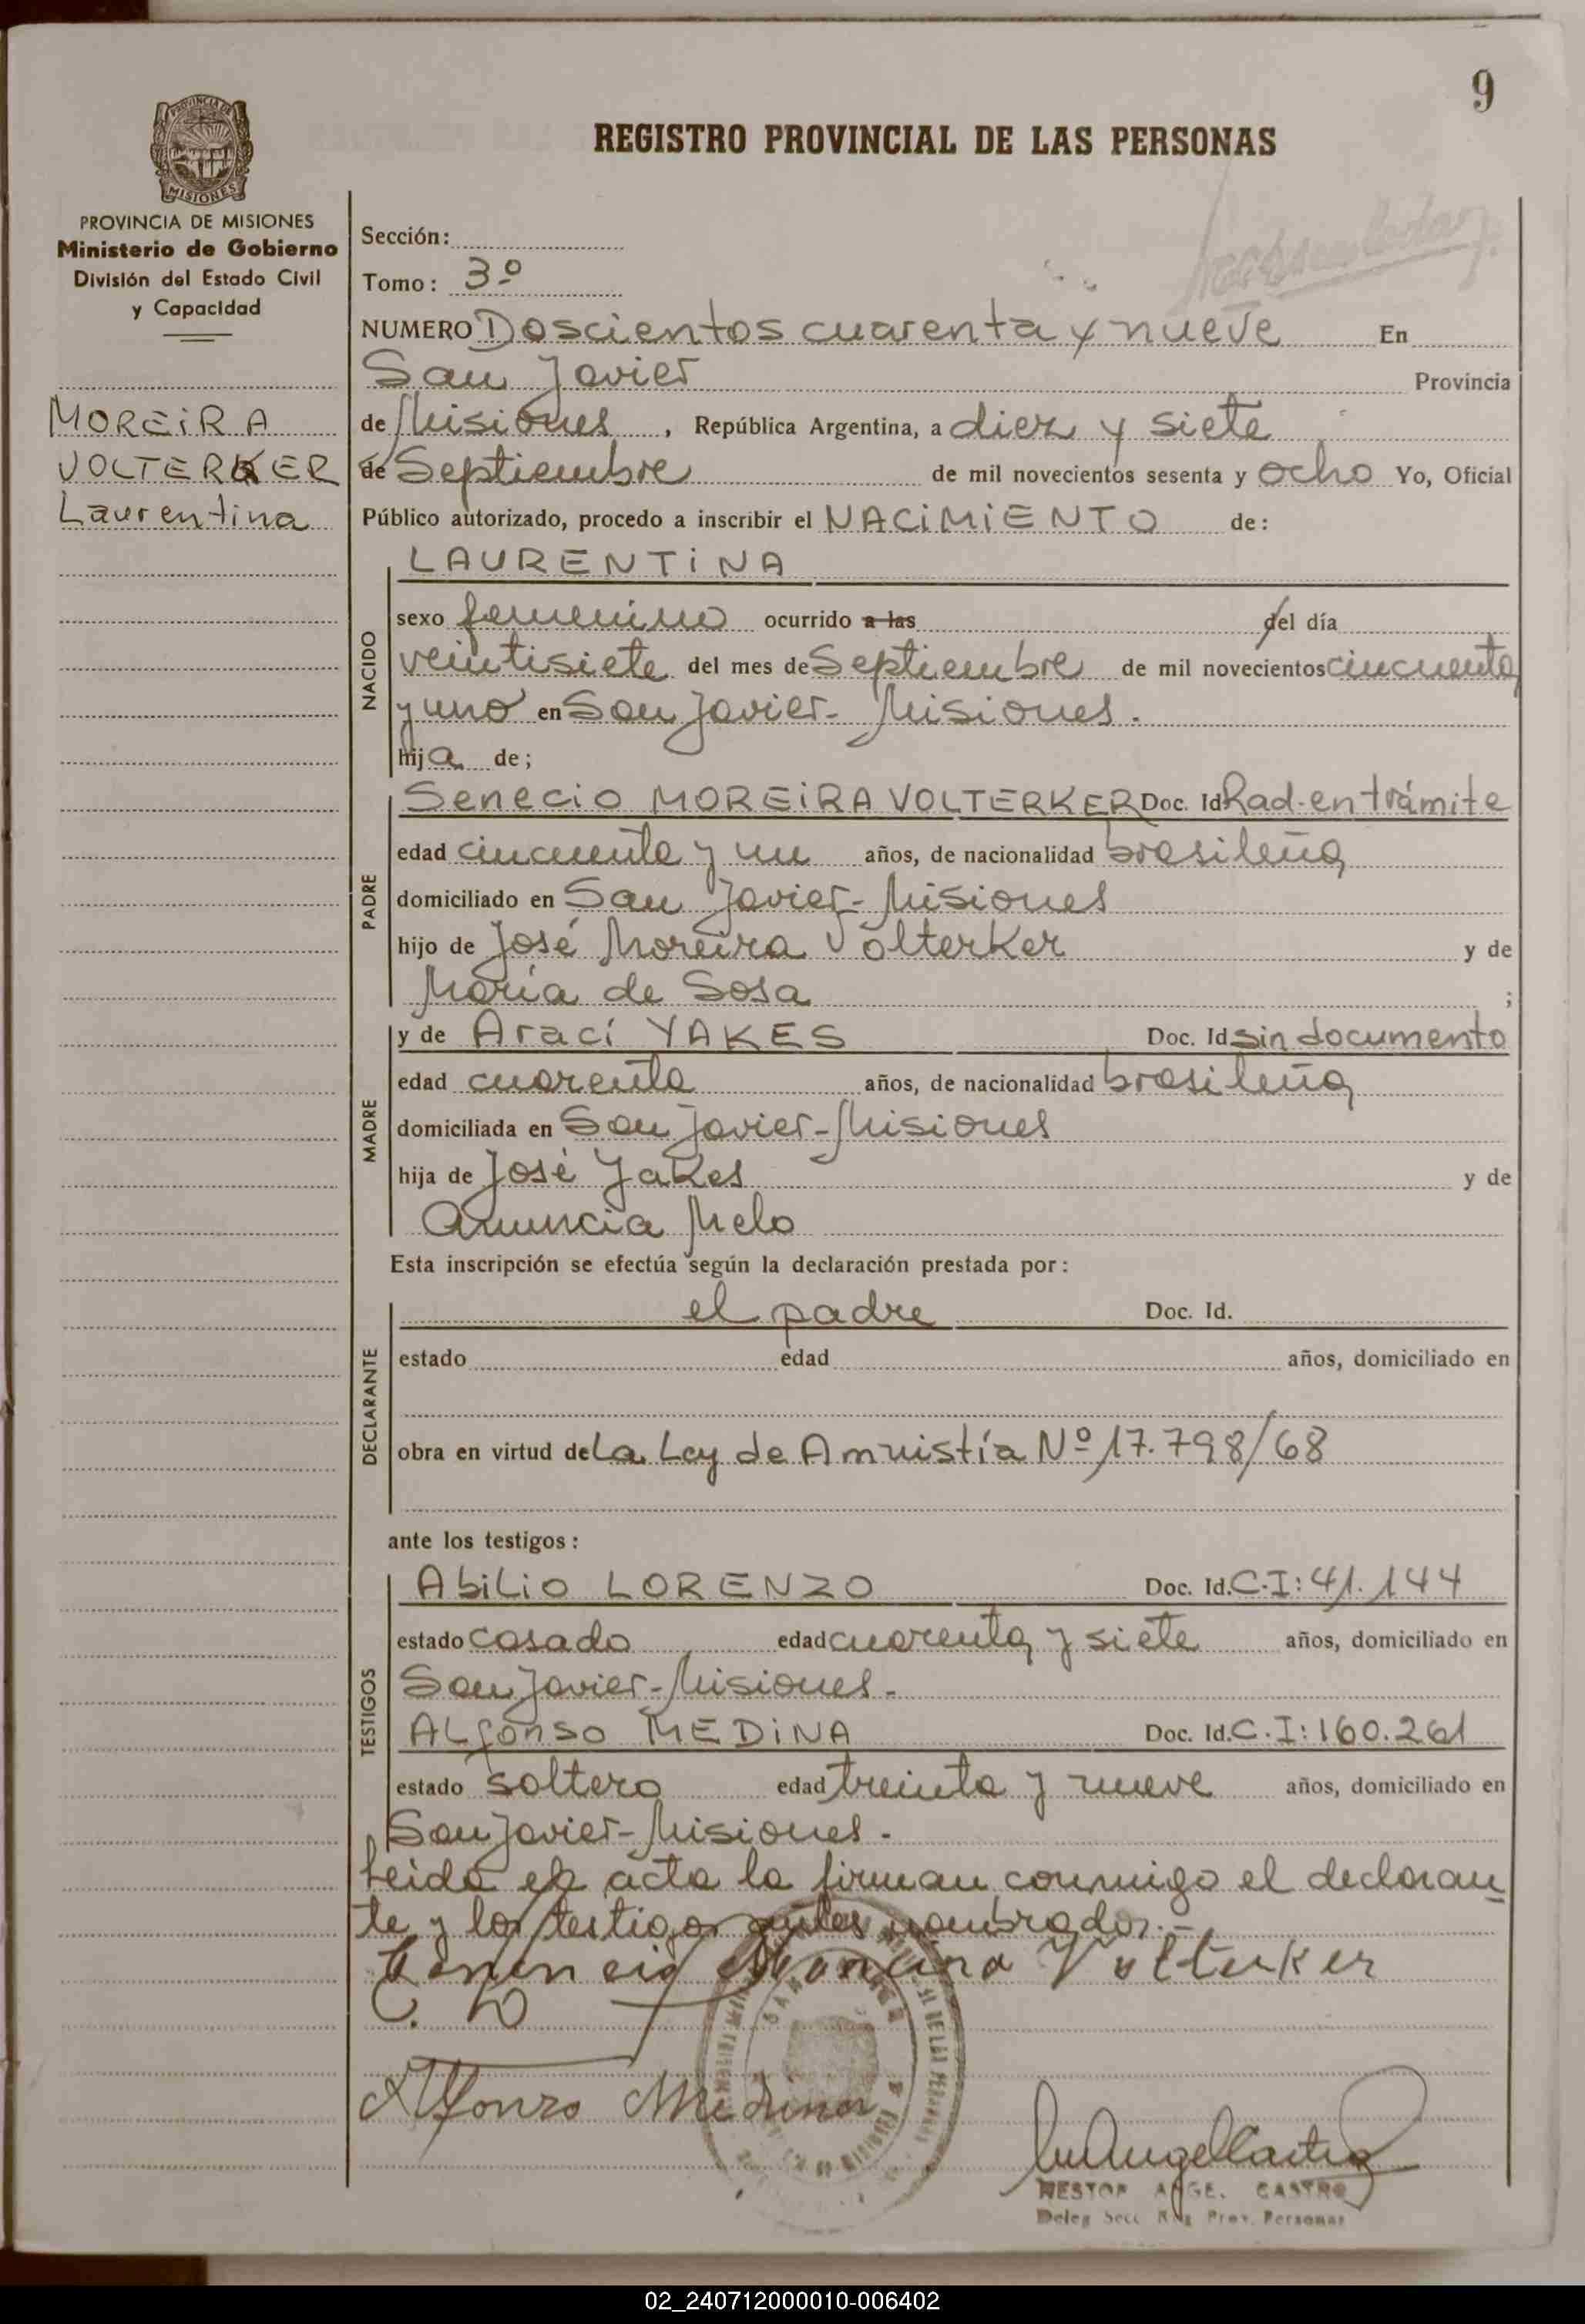 9
REGISTRO PROVINCIAL DE LAS PERSONAS
PROVINCIA DE MISIONES
PROVINCIA DE MISIONES
Ministerio de Gobierno
División del Estado Civil
y Capacidad
MOREIRA
VOLTERKER
Laurentina
Sección:
Tomo: 3º
NUMERO Doscientos cuarenta y nueve En
San Javier Provincia
de Misiones, República Argentina, a diez y siete
de Septiembre de mil novecientos sesenta y ocho Yo, Oficial
Público autorizado, procedo a inscribir el NACIMIENTO de:
NACIDO
LAURENTINA
sexo femenino ocurrido a las del día
veintisiete del mes de Septiembre de mil novecientos cincuenta
y uno en San Javier - Misiones.
hija de;
PADRE
Senecio MOREIRA VOLTERKER Doc. Id Rad. en trámite
edad cincuenta y un años, de nacionalidad brasileña
domiciliado en San Javier - Misiones
hijo de José Moreira Volterker y de
María de Sosa ;
MADRE
y de Araci YAKES Doc. Id sin documento
edad cuarenta años, de nacionalidad brasileña
domiciliada en San Javier - Misiones
hija de José Yakes y de
Anuncia Melo
Esta inscripción se efectúa según la declaración prestada por:
DECLARANTE
el padre Doc. Id.
estado edad años, domiciliado en
obra en virtud de La Ley de Amnistía Nº 17.798/68
ante los testigos:
TESTIGOS
Abilio LORENZO Doc. Id. C.I: 41.144
estado casado edad cuarenta y siete años, domiciliado en
San Javier - Misiones.
Alfonso MEDINA Doc. Id. C.I: 160.261
estado soltero edad treinta y nueve años, domiciliado en
San Javier - Misiones.
Leida el acta la firman conmigo el declaran
te y los testigos antes nombrados.-
Moreira Volterker
Alfonzo Medina
NESTOR ANGE. CASTRO
Deleg Secc Reg Prov. Personas
02_240712000010-006402